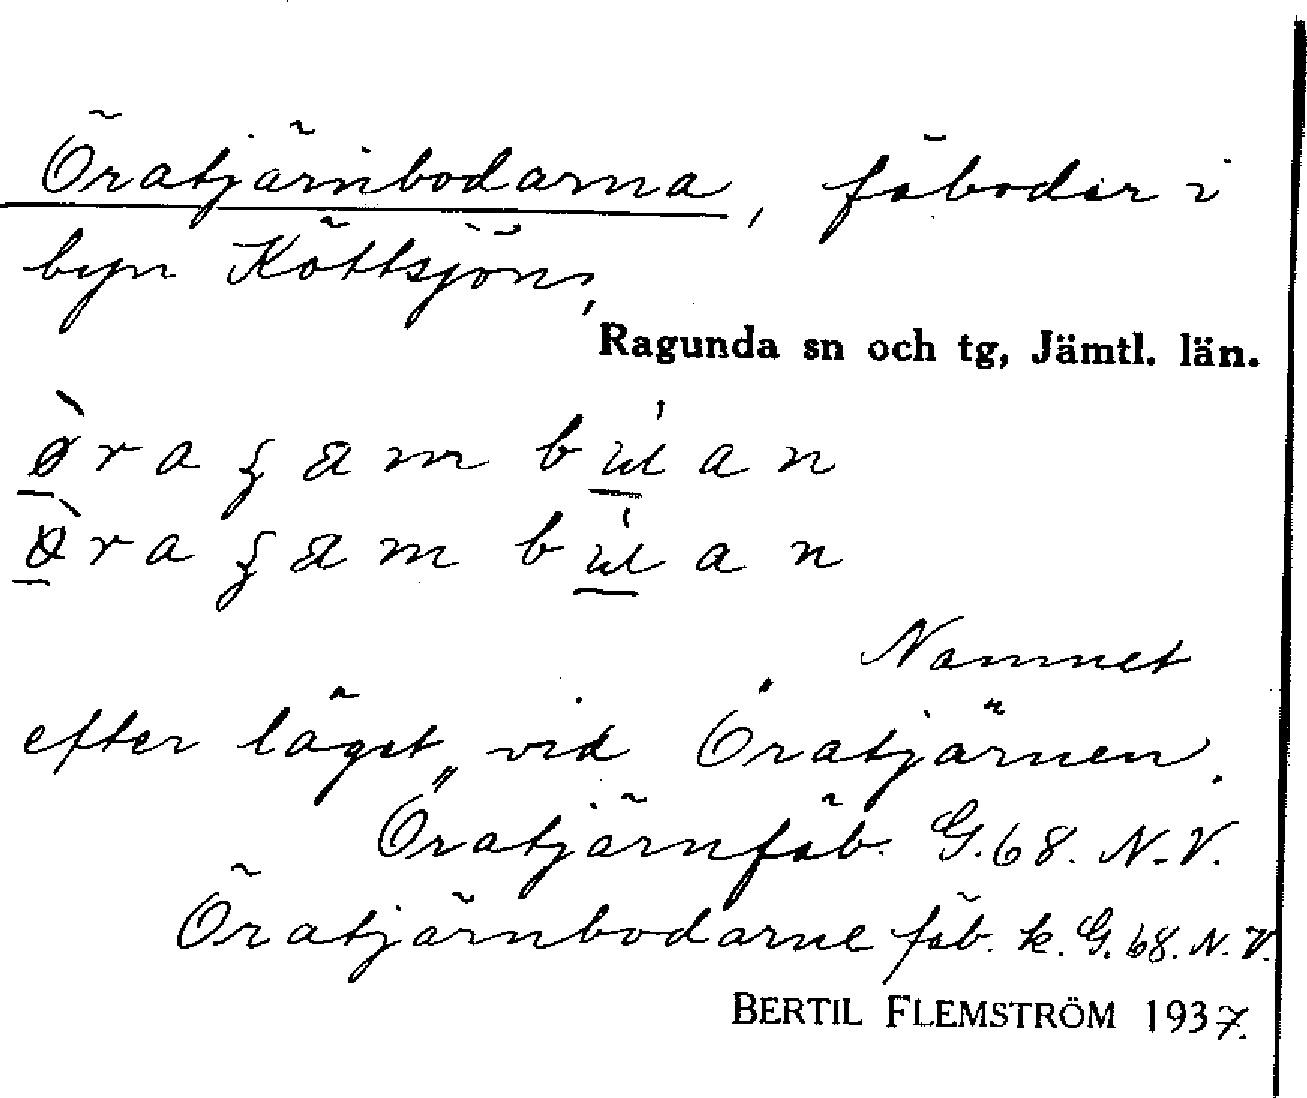 Öratjärnbodarna, fäbodar i
byn Köttsjön,
Ragunda sn och tg, Jämtl. län.
Namnet
efter läget vid Öratjärnen.
Öratjärnfäb. G.68. N.V.
Öratjärnbodarne fäb. k. G. 68. N.V.
BERTIL FLEMSTRÖM 1937.